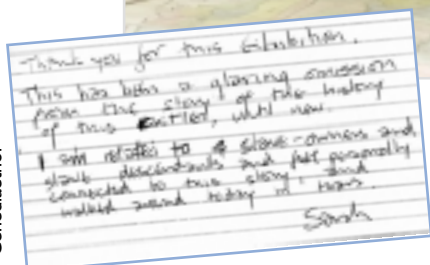 Thank you for this Exhibition.
This has been a glaring omission
from the story of the history
of this castle, until now.
I am related to slave-owners and
slave descendants and felt personally
connected to this story and
walked around today in
Sarah